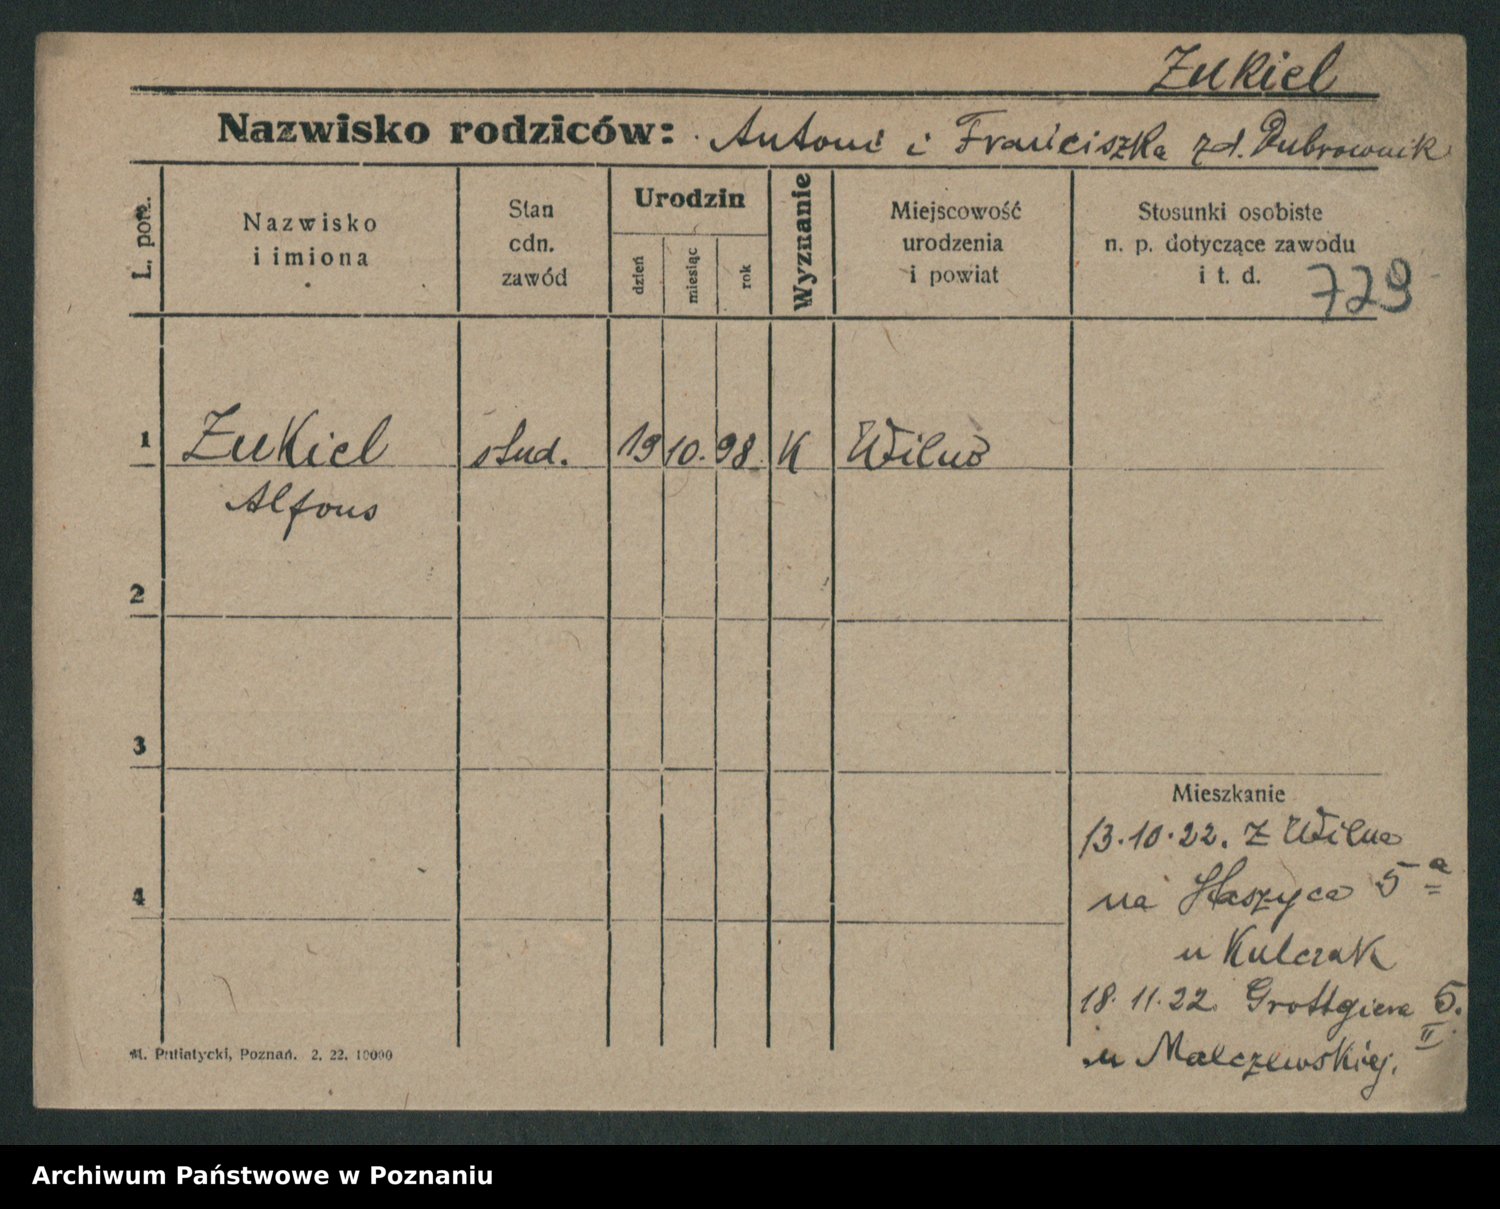 Zukiel
Nazwisko rodziców: Antoni i Franciszka zd. Dubrownik
L. porz.
Nazwisko
i imiona
Stan
cdn.
zawód
Urodzin
dzień
miesiąc
rok
Wyznanie
Miejscowość
urodzenia
i powiat
Stosunki osobiste
n. p. dotyczące zawodu
i t. d.
729
1 Zukiel stud. 19 10. 98. K Wilno
Alfons
2
3
4
Mieszkanie
13.10.22. z Wilna
na 5 a
u Kulczak
18.11.22. Grottgiera 5.
II
u Malczewskiej.
M. Putiatycki, Poznań. 2. 22. 10000
Archiwum Państwowe w Poznaniu